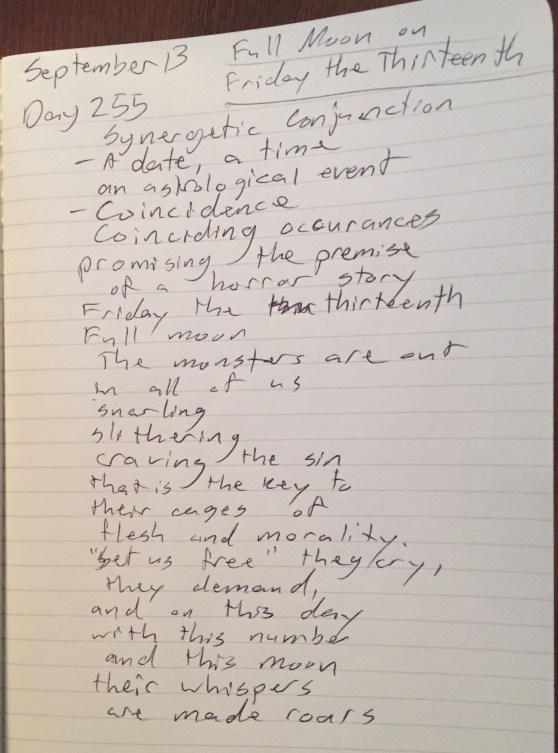 September 13
Full Moon on
Friday the Thirteenth
Day 255
Synergetic Conjunction
- A date, a time
an astrological event
- Coincidence
Coinciding occurances
promising the premise
of a horror story
Friday the thirteenth
Full moon
The monsters are out
in all of us
snarling
slithering
craving the sin
that is the key to
their cages of
flesh and morality.
"Set us free" they cry,
they demand,
and on this day
with this number
and this moon
their whispers
are made roars